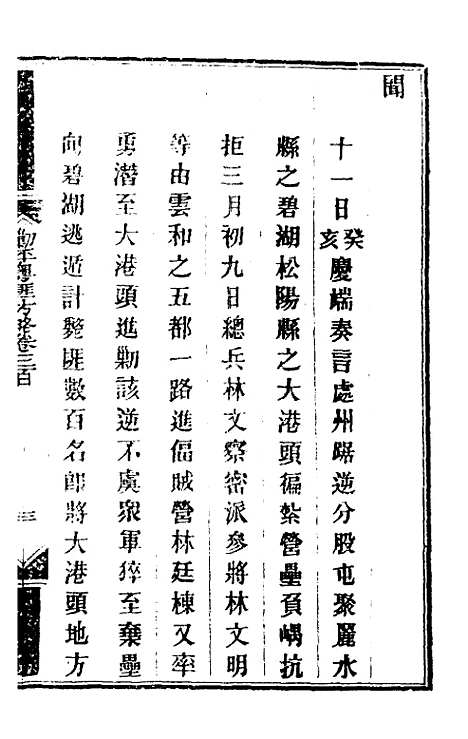 聞
十一日癸亥慶端奏言處州踞逆分股屯聚麗水
縣之碧湖松陽縣之大港頭徧紮營壘負嵎抗
拒三月初九日總兵林文察密派參將林文明
等由雲和之五都一路進偪賊營林廷棟又率
勇潛至大港頭進勦該逆不虞衆軍猝至棄壘
向碧湖逃遁計斃匪數百名卽將大港頭地方
勦平粵匪方略卷三百
三